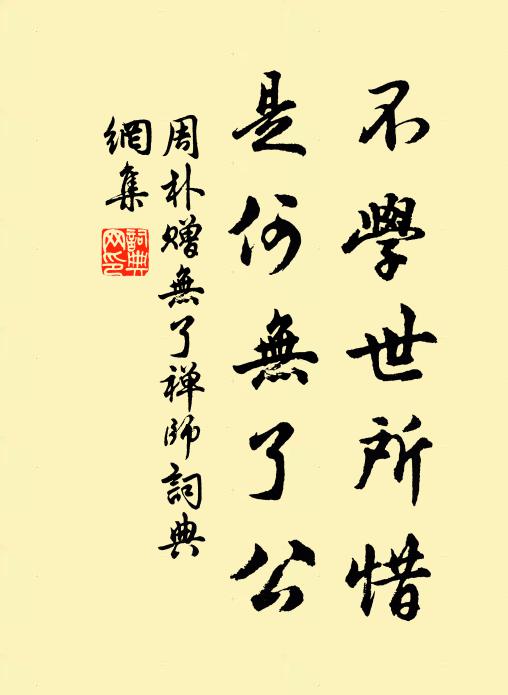 不學世所惜
是何無了公
周朴贈無了禅師詞典
網集
詞典
网印